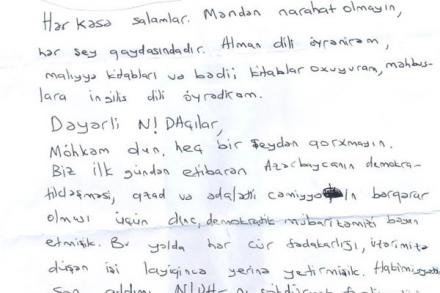 Hər kəsə salamlar. Məndən narahat olmayın,
hər şey qaydasındadır. Alman dili öyrənirəm,
maliyyə kitabları və bədii kitablar oxuyuram, məhbus-
lara ingilis dili öyrədirəm.
Dəyərli N!DAçılar,
Möhkəm durun, heç bir şeydən qorxmayın.
Biz ilk gündən etibarən Azərbaycanın demokra-
tikləşməsi, azad və ədalətli cəmiyyətin bərqərar
olması üçün dinc, demokratik mübarizəmizi bəyan
etmişik. Bu yolda hər cür fədakarlığı, üzərimizə
düşən işi layiqincə yerinə yetirmişik. Hakimiyyətin